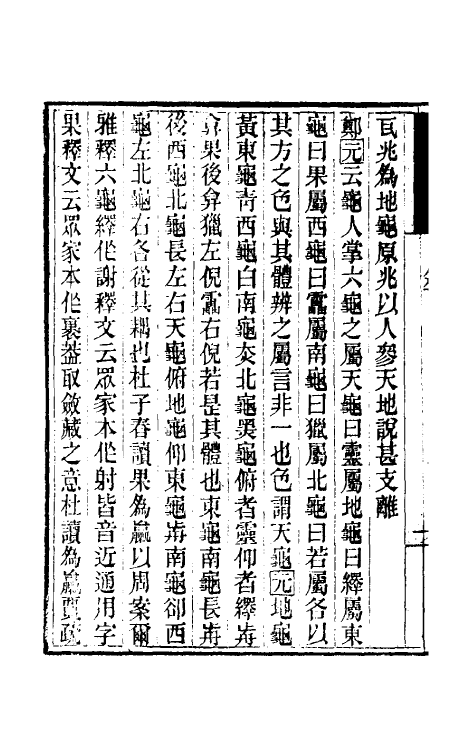 瓦兆為地龜原兆以人參天地說甚支離
鄭元云龜人掌六龜之屬天龜曰靈屬地龜曰繹屬東
龜曰果屬西龜曰靁屬南龜曰獵屬北龜曰若屬各以
其方之色與其體辨之屬言非一也色謂天龜元地龜
黃東龜靑西龜白南龜炎北龜黑龜俯者靈仰者繹歬
弇果後弇獵左倪靁右倪若是其體也東龜南龜長歬
後西龜北龜長左右天龜俯地龜仰東龜歬南龜卻西
龜左北龜右各從其耦也杜子春讀果為蠃以周案爾
雅釋六龜繹作謝釋文云眾家本作射皆音近通用字
果釋文云眾家本作裹葢取斂藏之意杜讀為蠃賈疏